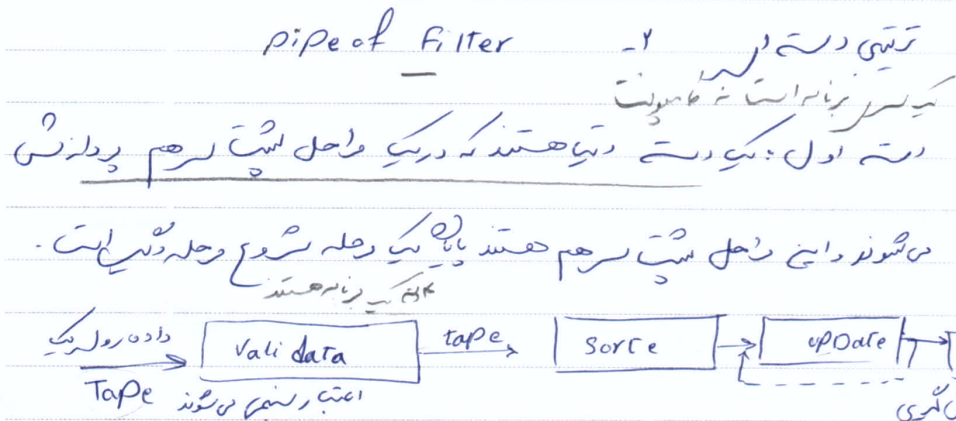 ترتیبی دسته ای ۲- pipe of Filter
یک سری برنامه است نه کامپوننت
دسته اول: یک دسته دیتا هستند که در یک مراحل پشت سر هم پردازش
می شوند و این مراحل پشت سر هم هستند پایان یک مرحله شروع مرحله دیگر است.
یک برنامه هستند
داده رو یک Tape
Vali data
tape
Sorte
upDate
اعتبار سنجی می شوند